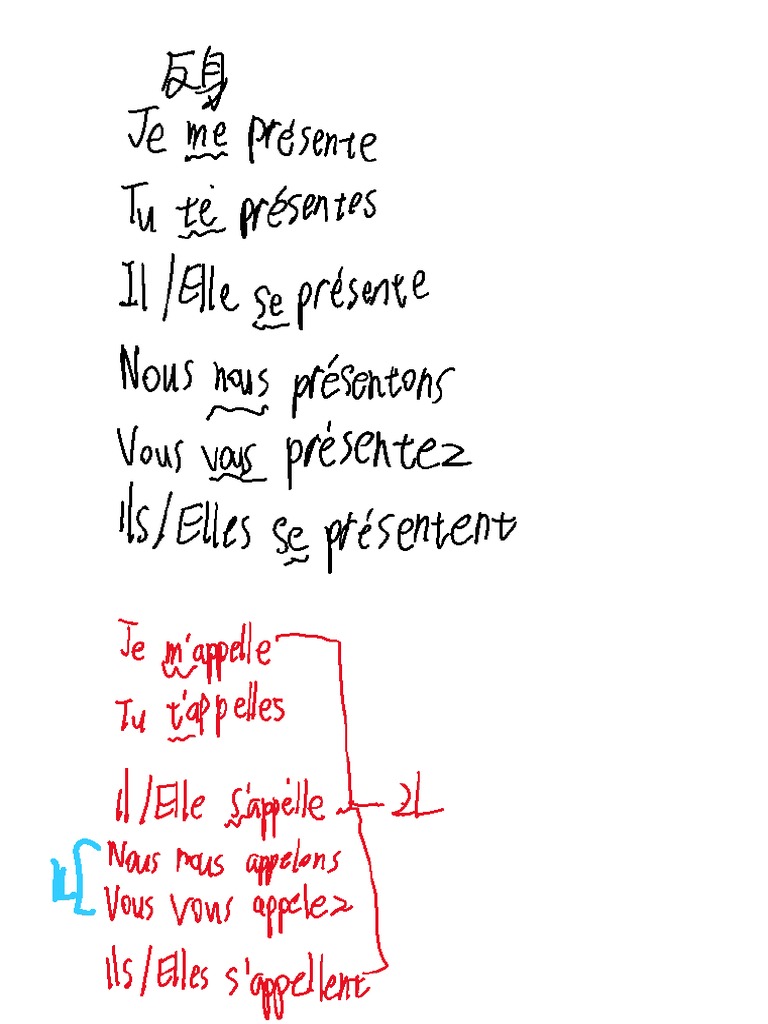 反身
Je me présente
Tu te présentes
Il/Elle se présente
Nous nous présentons
Vous vous présentez
Ils/Elles se présentent
Je m'appelle
Tu t'appelles
Il/Elle s'appelle
2L
Nous nous appelons
Vous vous appelez
1L
Ils/Elles s'appellent